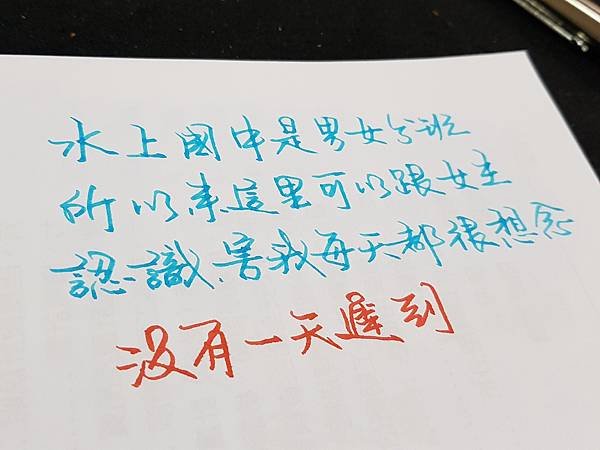 水上國中是男女分班
所以來這里可以跟女生
認識、害我每天都很想念
没有一天遲到